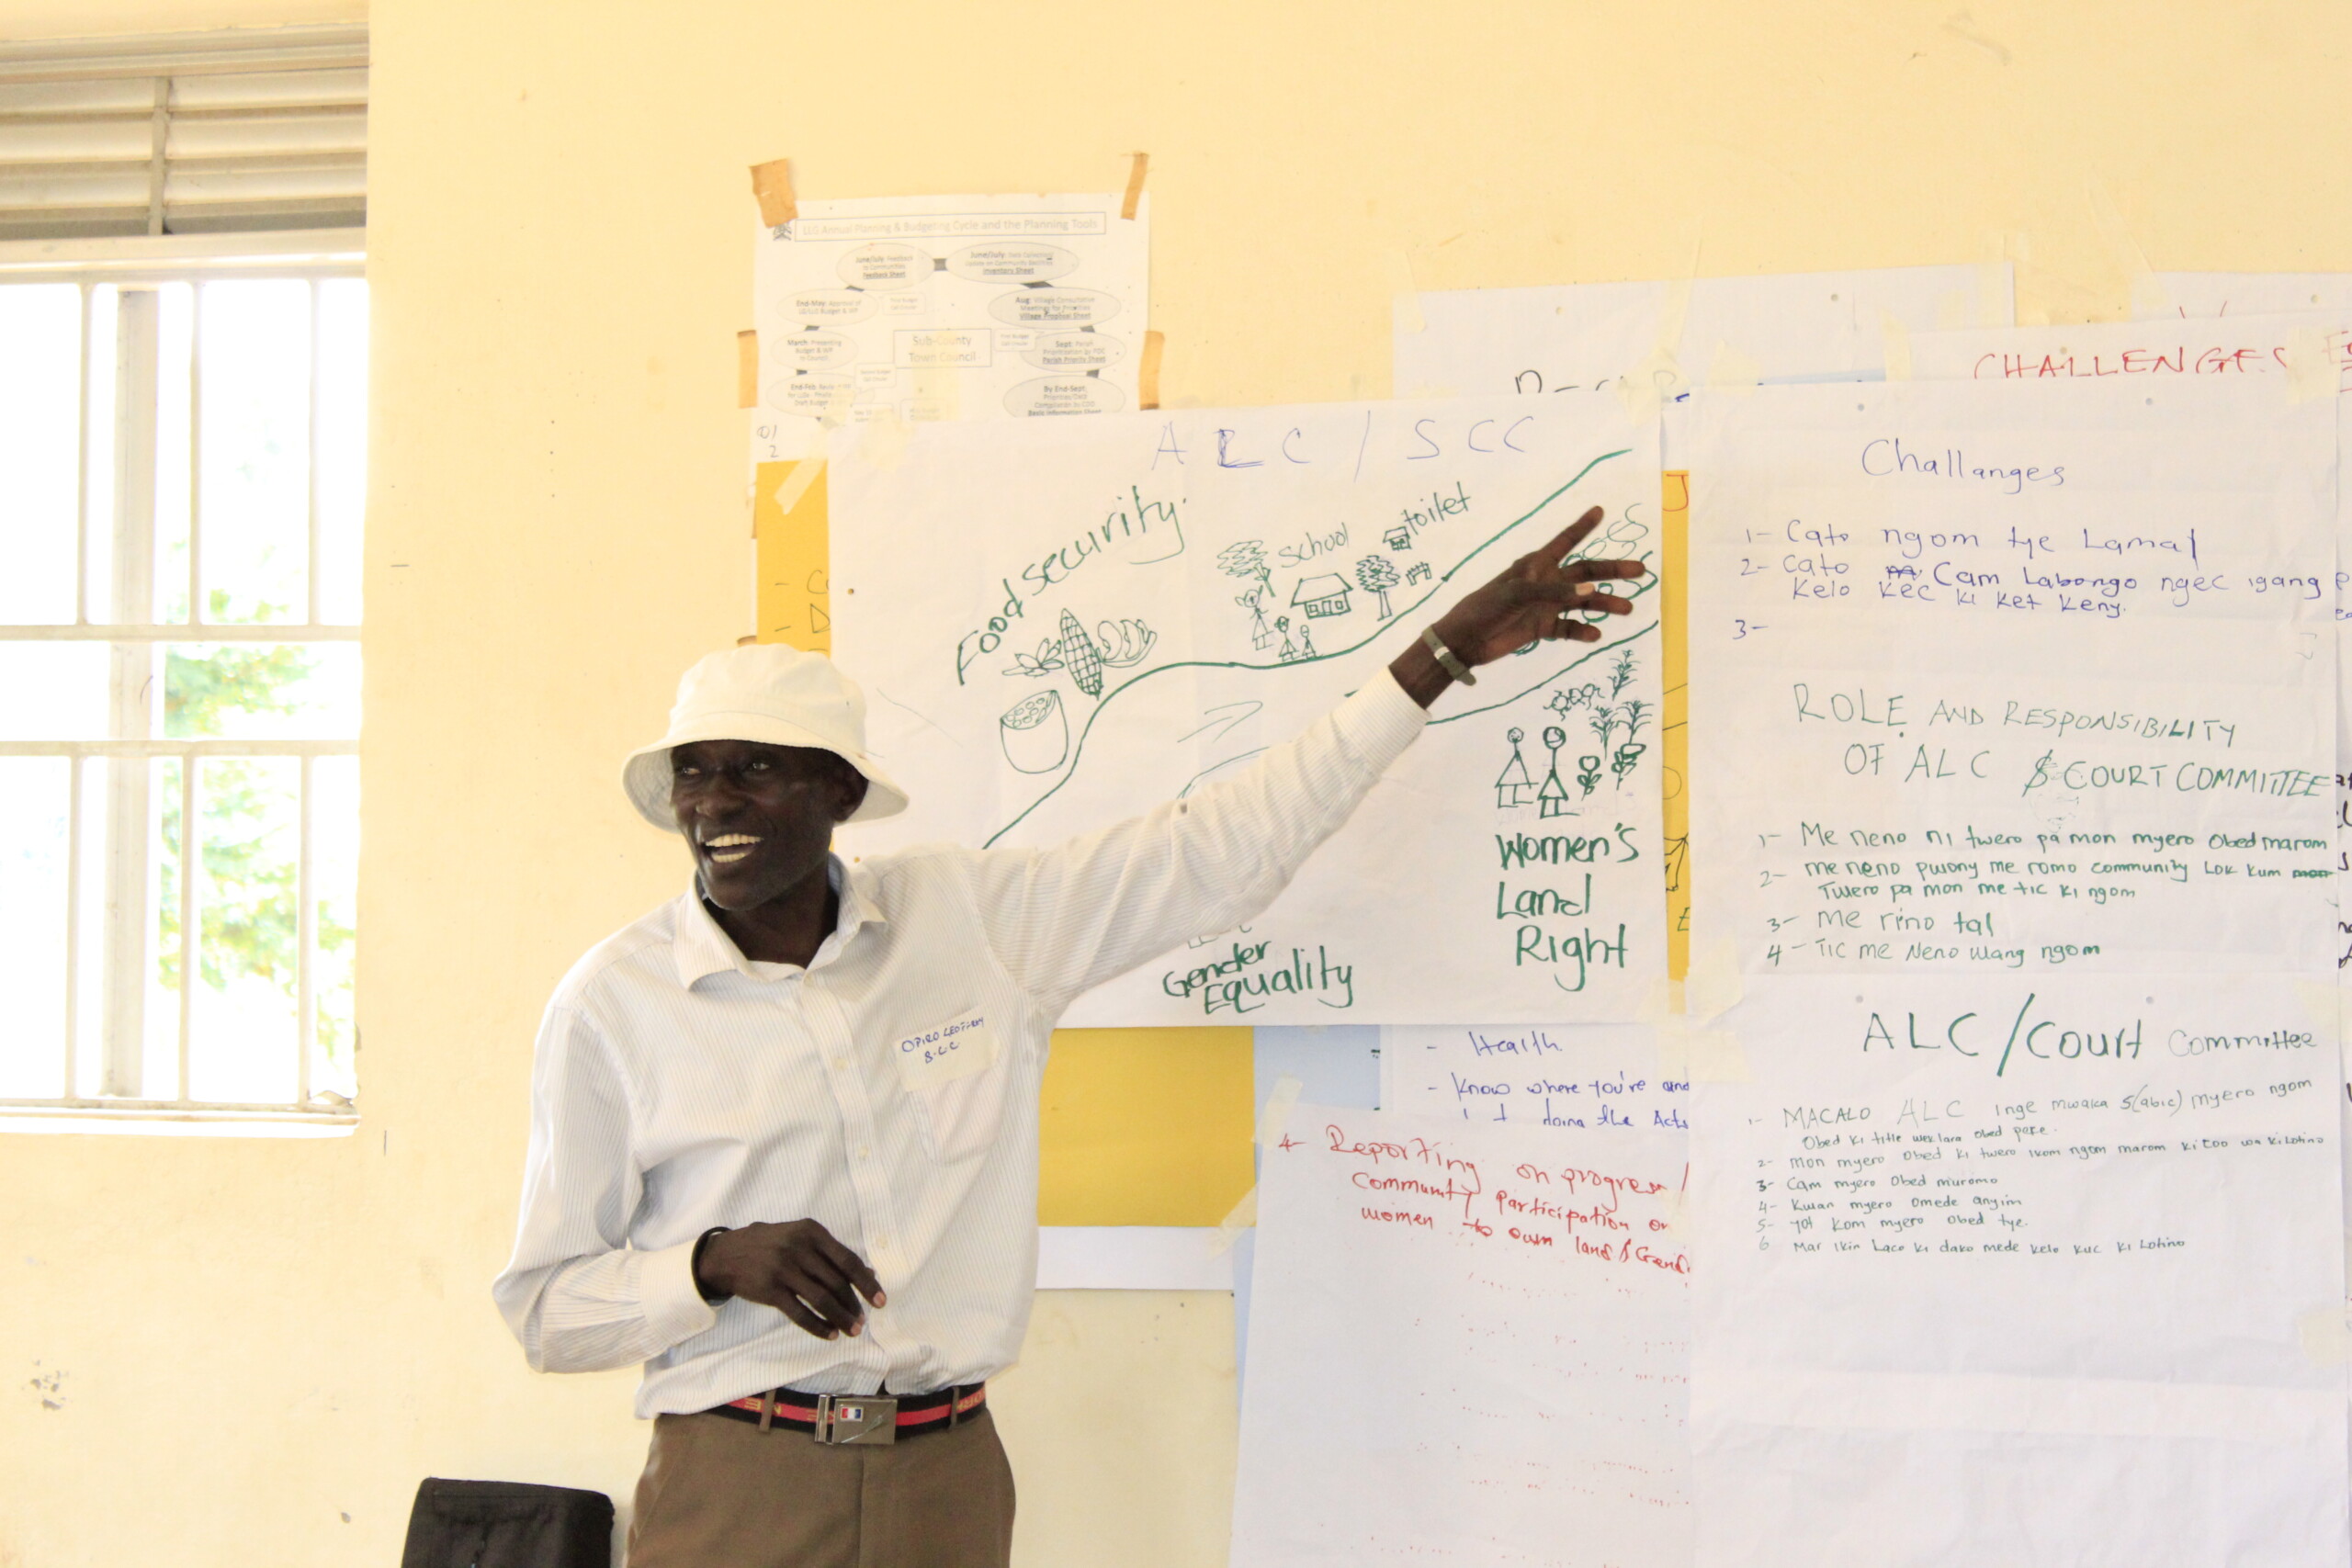 LLG Annual Planning & Budgeting Cycle and the Planning Tools
June/July: Feedback
to Communities
Feedback Sheet
June/July: Data Collection/
Update on Community
Inventory Sheet
End-May: Approval of
Budget & WP
Aug: Village Consultative
Meetings for Priorities
March: Presenting
Budget & WP
to Council
Sub-County
Town Council
Sept: Parish
Prioritization by PDC
Parish Priority Sheet
Draft Budget
By End-Sept.
Priorities/Data
Compilation by
Basic Information Sheet
CHALLENGES
ALC / SCC
Food security.
School
toilet
Women's
Land
Right
Gender
Equality
Challanges
1- Cato ngom tye Lamal
2- Cato Cam Labongo ngec igang
Kelo Kec ki ket Keny.
3-
ROLE AND RESPONSIBILITY
OF ALC $ COURT COMMITTEE
1- Me neno ni twero pa mon myero Obed marom
2- me neno pwony me romo community Lok kum mon
Twero pa mon me tic ki ngom
3- Me rino tal
4- Tic me Neno Wang ngom
ALC/Court Committee
1- MACALO ALC inge mwaka 5(abic) myero ngom
Obed ki title wek lara obed peke.
2- mon myero Obed ki twero ikom ngom marom ki coo wa ki Lotino
3- Cam myero Obed muromo
4- Kwan myero Omede anyim
5- yot kom myero obed tye.
6 Mar ikin Laco ki dako mede kelo kuc ki Lotino
OPIRO GEOFFREY
- Health
- Know where you're and
doing the Acts
4- Reporting on progress
Community participation on
women to own land $